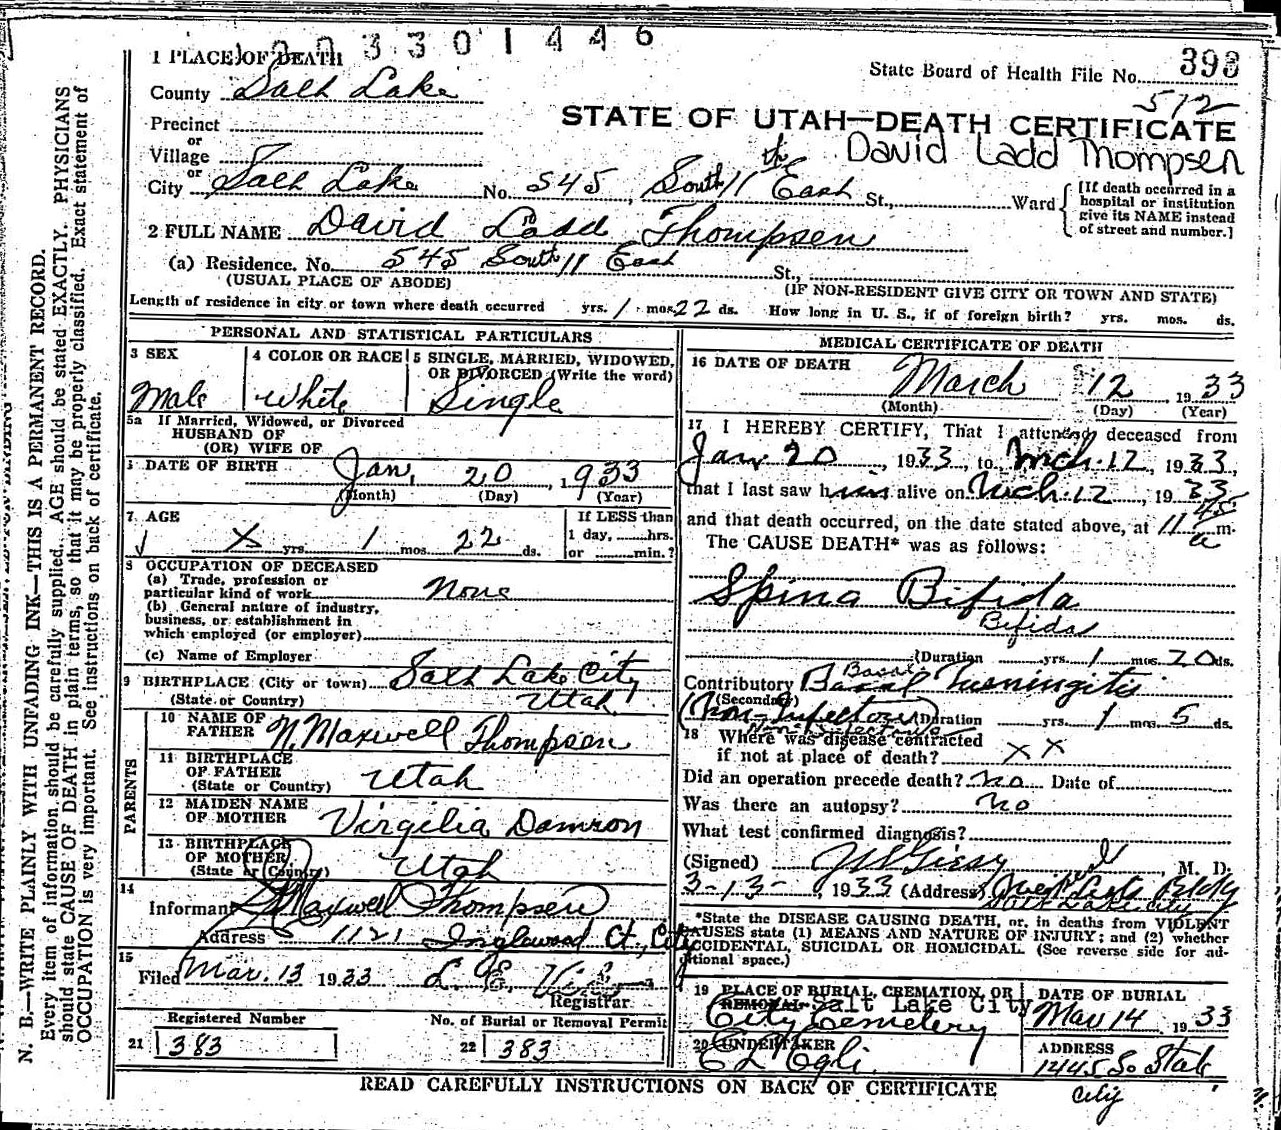 003301446
1 PLACE OF DEATH
State Board of Health File No. 393
512
County Salt Lake
STATE OF UTAH—DEATH CERTIFICATE
Precinct
David Ladd Thompsen
or
Village
or
City Salt Lake No. 545, South 11th East St., Ward
[If death occurred in a
hospital or institution
give its NAME instead
of street and number.]
2 FULL NAME David Ladd Thompsen
(a) Residence. No. 545 South 11 East St.,
(USUAL PLACE OF ABODE) (IF NON-RESIDENT GIVE CITY OR TOWN AND STATE)
Length of residence in city or town where death occurred yrs. 1 mos. 22 ds. How long in U. S., if of foreign birth? yrs. mos. ds.
PERSONAL AND STATISTICAL PARTICULARS
3 SEX
Male
4 COLOR OR RACE
White
5 SINGLE, MARRIED, WIDOWED,
OR DIVORCED (Write the word)
Single
5a If Married, Widowed, or Divorced
HUSBAND OF
(OR) WIFE OF
DATE OF BIRTH Jan. 20, 1933
(Month) (Day) (Year)
7 AGE
X yrs. 1 mos. 22 ds.
If LESS than
1 day, hrs.
or min.?
8 OCCUPATION OF DECEASED
(a) Trade, profession or
particular kind of work None
(b) General nature of industry,
business, or establishment in
which employed (or employer)
(c) Name of Employer
9 BIRTHPLACE (City or town) Salt Lake City
(State or Country) Utah
PARENTS
10 NAME OF
FATHER N. Maxwell Thompsen
11 BIRTHPLACE
OF FATHER
(State or Country) Utah
12 MAIDEN NAME
OF MOTHER Virgilia Damron
13 BIRTHPLACE
OF MOTHER
(State or Country) Utah
14
Informant Maxwell Thompsen
Address 1121 Inglewood Ct., City
15
Filed Mar. 13 1933
Registrar
Registered Number
21 383
No. of Burial or Removal Permit
22 383
MEDICAL CERTIFICATE OF DEATH
16 DATE OF DEATH
March 12, 1933
(Month) (Day) (Year)
17 I HEREBY CERTIFY, That I attended deceased from
Jan 20, 1933, to Mch. 12, 1933,
that I last saw him alive on Mch. 12, 1933
and that death occurred, on the date stated above, at 11 45 a m.
The CAUSE DEATH* was as follows:
Spina Bifida
Bifida
(Duration yrs. 1 mos. 20 ds.
Basal
Contributory Basal meningitis
(Secondary)
(Non-Infectious) (Duration yrs. 1 mos. 5 ds.
18 Where was disease contracted
if not at place of death? XX
Did an operation precede death? no Date of
Was there an autopsy? no
What test confirmed diagnosis?
(Signed) M. D.
3-13-, 1933 (Address)
Salt Lake City
*State the DISEASE CAUSING DEATH, or, in deaths from VIOLENT
CAUSES state (1) MEANS AND NATURE OF INJURY; and (2) whether
ACCIDENTAL, SUICIDAL OR HOMICIDAL. (See reverse side for ad-
ditional space.)
19 PLACE OF BURIAL, CREMATION, OR
REMOVAL Salt Lake City
City Cemetery
DATE OF BURIAL
Mar 14, 1933
20 UNDERTAKER
Egli.
ADDRESS
1445 So State
City
READ CAREFULLY INSTRUCTIONS ON BACK OF CERTIFICATE
N. B.—WRITE PLAINLY WITH UNFADING INK—THIS IS A PERMANENT RECORD.
Every item of information should be carefully supplied. AGE should be stated EXACTLY. PHYSICIANS
should state CAUSE OF DEATH in plain terms, so that it may be properly classified. Exact statement of
OCCUPATION is very important. See instructions on back of certificate.